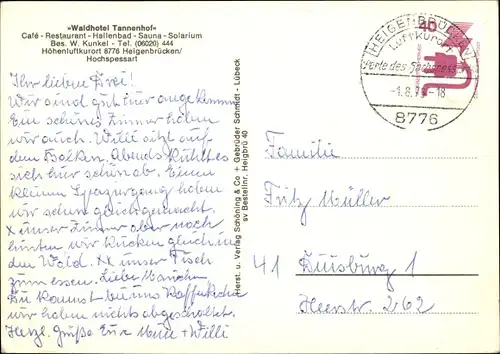 »Waldhotel Tannenhof«
Café - Restaurant - Hallenbad - Sauna - Solarium
Bes. W. Kunkel - Tel. (06020) 444
Höhenluftkurort 8776 Heigenbrücken/
Hochspessart
Ihr lieben Drei!
Wir sind gut hier angekommen
Ein schönes Zimmer haben
wir auch. Willi sitzt auf
dem Balkon. Abends kühlt es
sich hier schön ab. Einen
kleinen Spaziergang haben
wir schon gleich gemacht.
x unser Zimmer aber noch
hinten wir kucken gleich in
den Wald. xx unser Tisch
zum essen. Liebe
Du kannst bei uns Kaffee kochen
wir haben nichts abgeschaltet.
Herzl. Grüße Eure + Willi
Herst. u. Verlag Schöning & Co + Gebrüder Schmidt - Lübeck
sv Bestellnr. Heigbrü 40
HEIGENBRÜCKEN
Luftkurort
Pforte des Hochspessarts
-1.8.7 -18
8776
40
Familie
Fritz Müller
41 Duisburg 1
Heerstr. 262